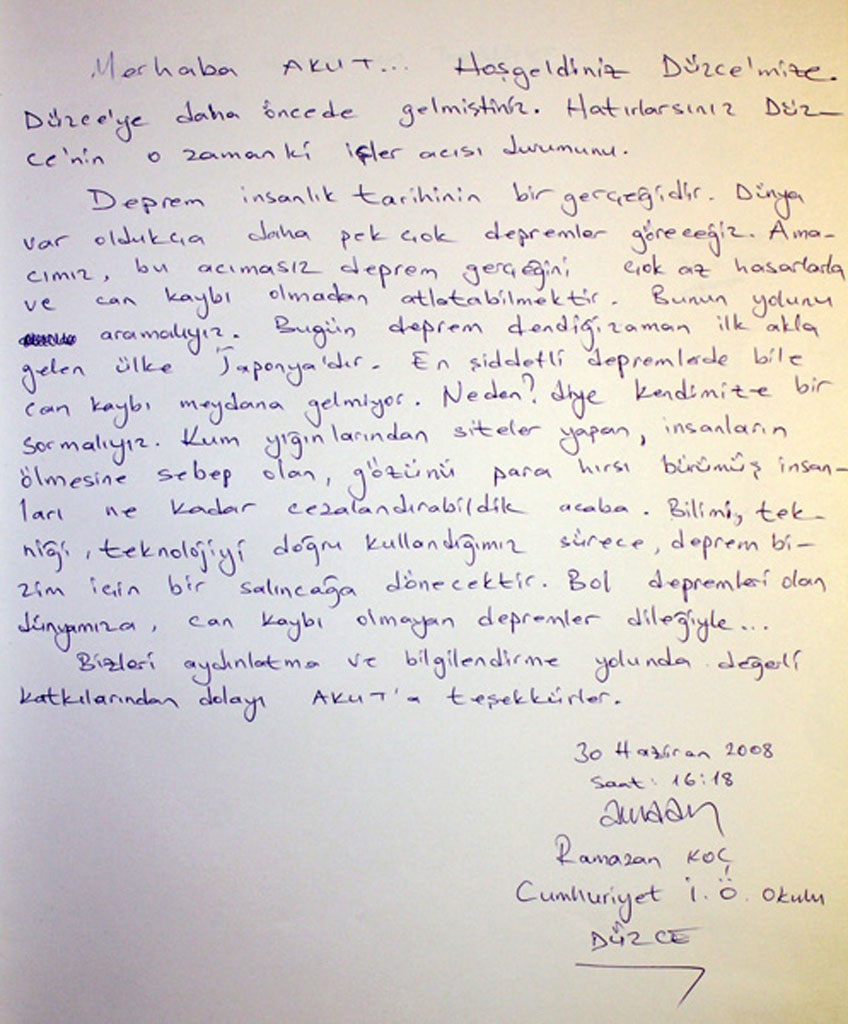 Merhaba AKUT... Hoşgeldiniz Düzce'mize.
Düzce'ye daha öncede gelmiştiniz. Hatırlarsınız Düz-
ce'nin o zamanki içler acısı durumunu.
Deprem insanlık tarihinin bir gerçeğidir. Dünya
var oldukça daha pek çok depremler göreceğiz. Ama-
cımız, bu acımasız deprem gerçeğini çok az hasarlarla
ve can kaybı olmadan atlatabilmektir. Bunun yolunu
aramalıyız. Bugün deprem dendiği zaman ilk akla
gelen ülke Japonya'dır. En şiddetli depremlerde bile
can kaybı meydana gelmiyor. Neden? diye kendimize bir
sormalıyız. Kum yığınlarından siteler yapan, insanların
ölmesine sebep olan, gözünü para hırsı bürümüş insan-
ları ne kadar cezalandırabildik acaba. Bilimi, tek-
niği, teknolojiyi doğru kullandığımız sürece, deprem bi-
zim için bir salıncağa dönecektir. Bol depremleri olan
dünyamıza, can kaybı olmayan depremler dileğiyle...
Bizleri aydınlatma ve bilgilendirme yolunda değerli
katkılarından dolayı AKUT'a teşekkürler.
30 Haziran 2008
Saat: 16:18
Ramazan KOÇ
Cumhuriyet İ.Ö. Okulu
DÜZCE